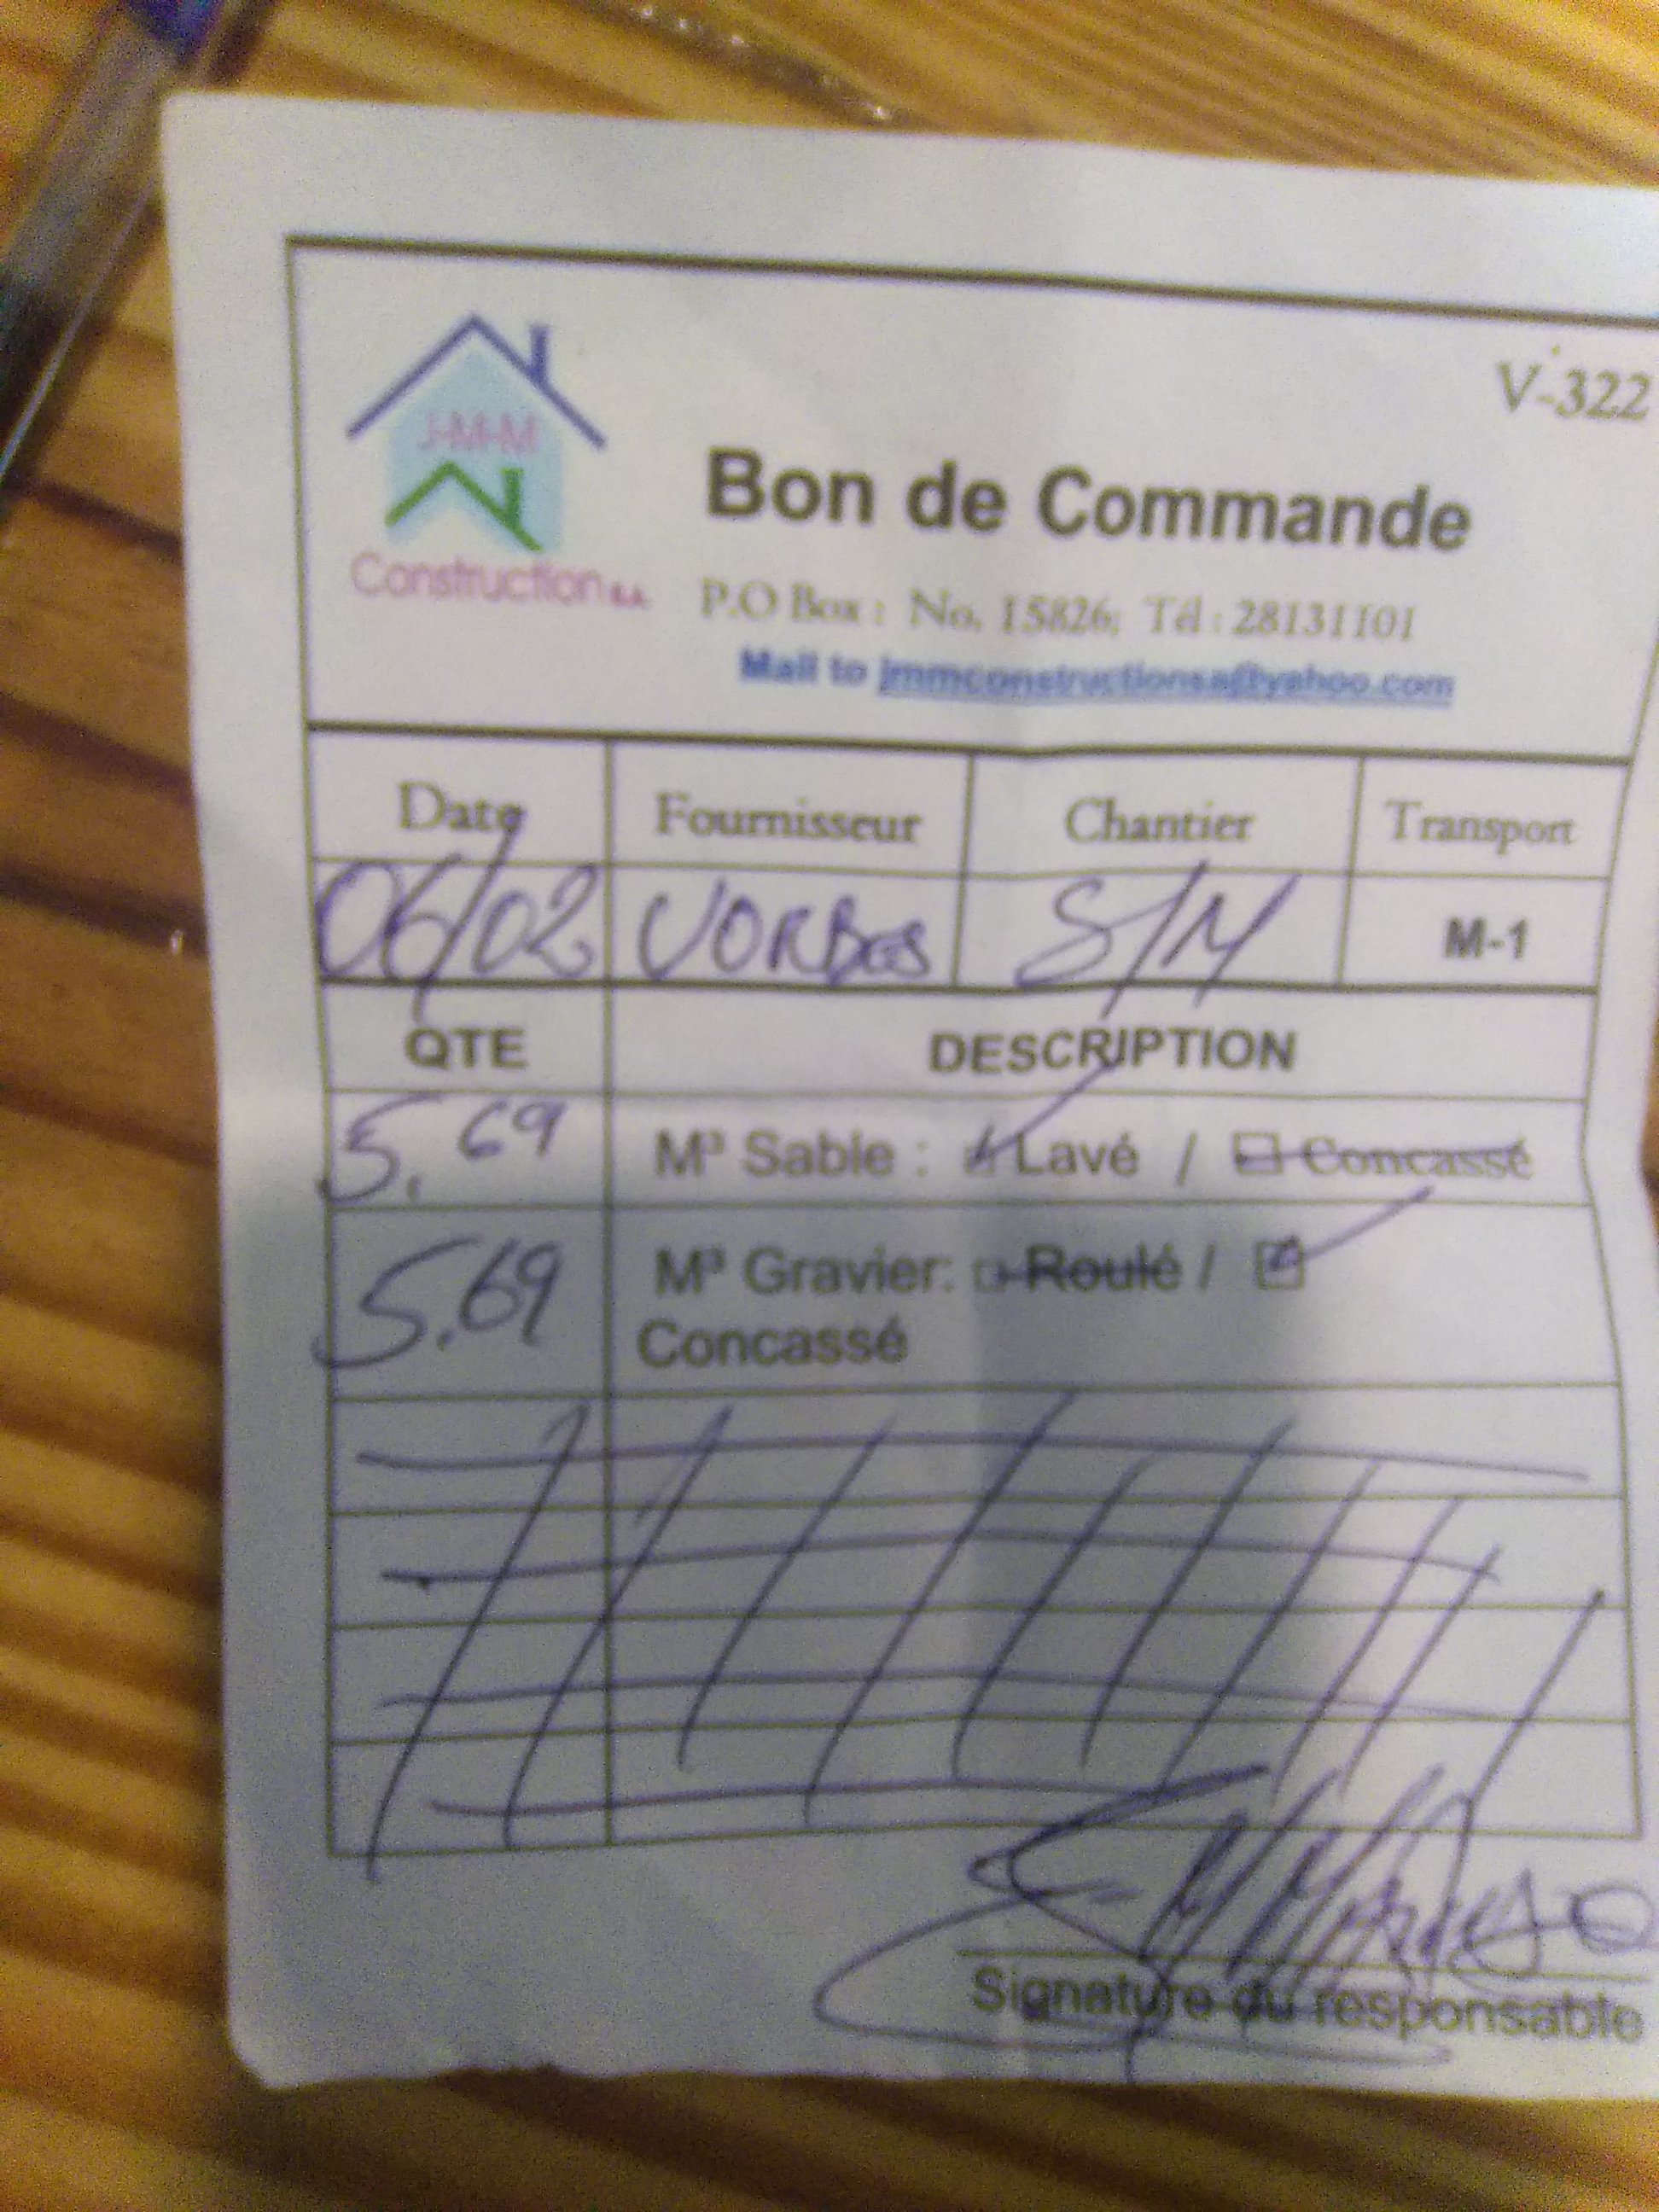 V-322
J-M-M
Construction S.A.
Bon de Commande
P.O Box : No. 15826; Tél : 28131101
Mail to jmmconstructionsa@yahoo.com
Date Fournisseur Chantier Transport
06/02 VORBES S/M M-1
QTE DESCRIPTION
5.69 M³ Sable : Lavé / Concassé
5.69 M³ Gravier: Roulé /
Concassé
Signature du responsable